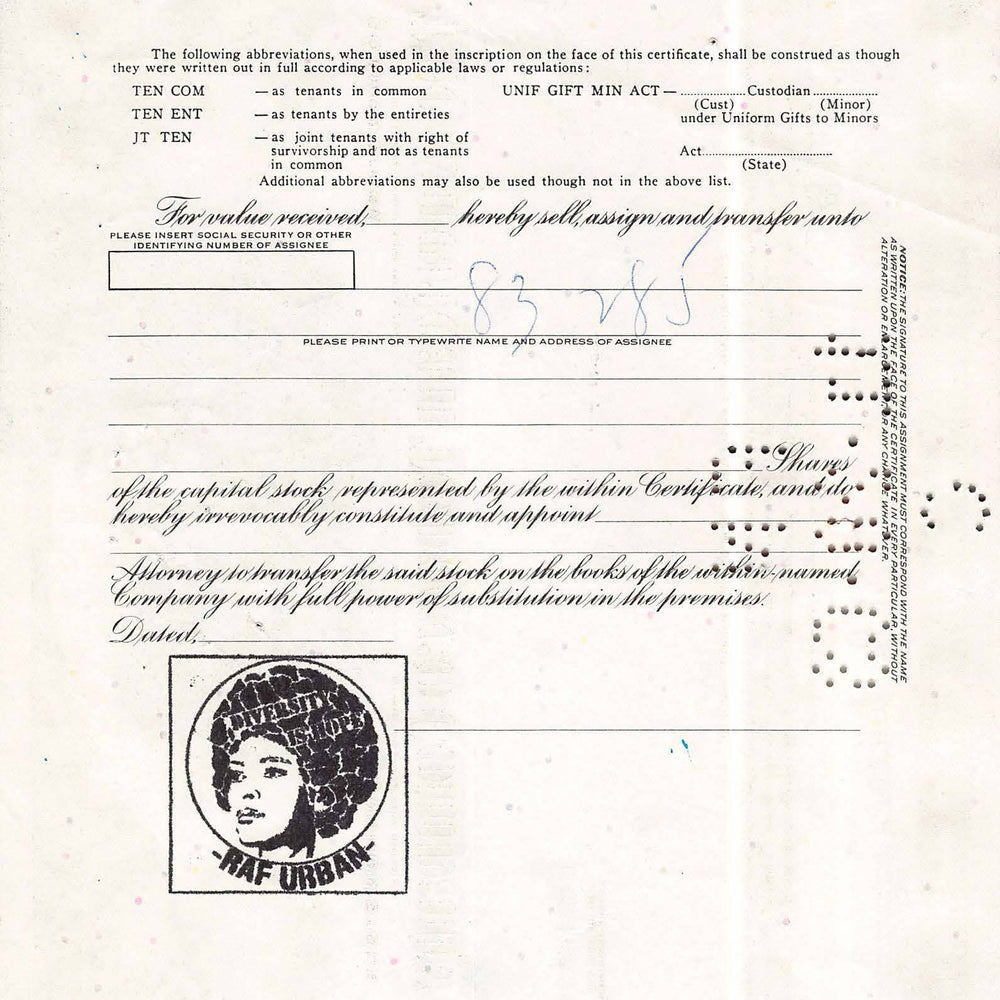 The following abbreviations, when used in the inscription on the face of this certificate, shall be construed as though
they were written out in full according to applicable laws or regulations:
TEN COM — as tenants in common
TEN ENT — as tenants by the entireties
JT TEN — as joint tenants with right of
survivorship and not as tenants
in common
UNIF GIFT MIN ACT — ..................Custodian..................
(Cust) (Minor)
under Uniform Gifts to Minors
Act..................................
(State)
Additional abbreviations may also be used though not in the above list.
For value received, hereby sell, assign and transfer unto
PLEASE INSERT SOCIAL SECURITY OR OTHER
IDENTIFYING NUMBER OF ASSIGNEE
83 285
PLEASE PRINT OR TYPEWRITE NAME AND ADDRESS OF ASSIGNEE
Shares
of the capital stock represented by the within Certificate, and do
hereby irrevocably constitute and appoint
Attorney to transfer the said stock on the books of the within-named
Company with full power of substitution in the premises.
Dated,
NOTICE: THE SIGNATURE TO THIS ASSIGNMENT MUST CORRESPOND WITH THE NAME
AS WRITTEN UPON THE FACE OF THE CERTIFICATE IN EVERY PARTICULAR, WITHOUT
ALTERATION OR ENLARGEMENT, OR ANY CHANGE WHATEVER.
DIVERSITY
IS HOPE
-RAF URBAN-